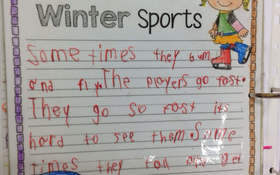 Winter Sports
Some times they bum
and fly The players go fast.
They go so fast its
hard to see them. Some
times they fall and get